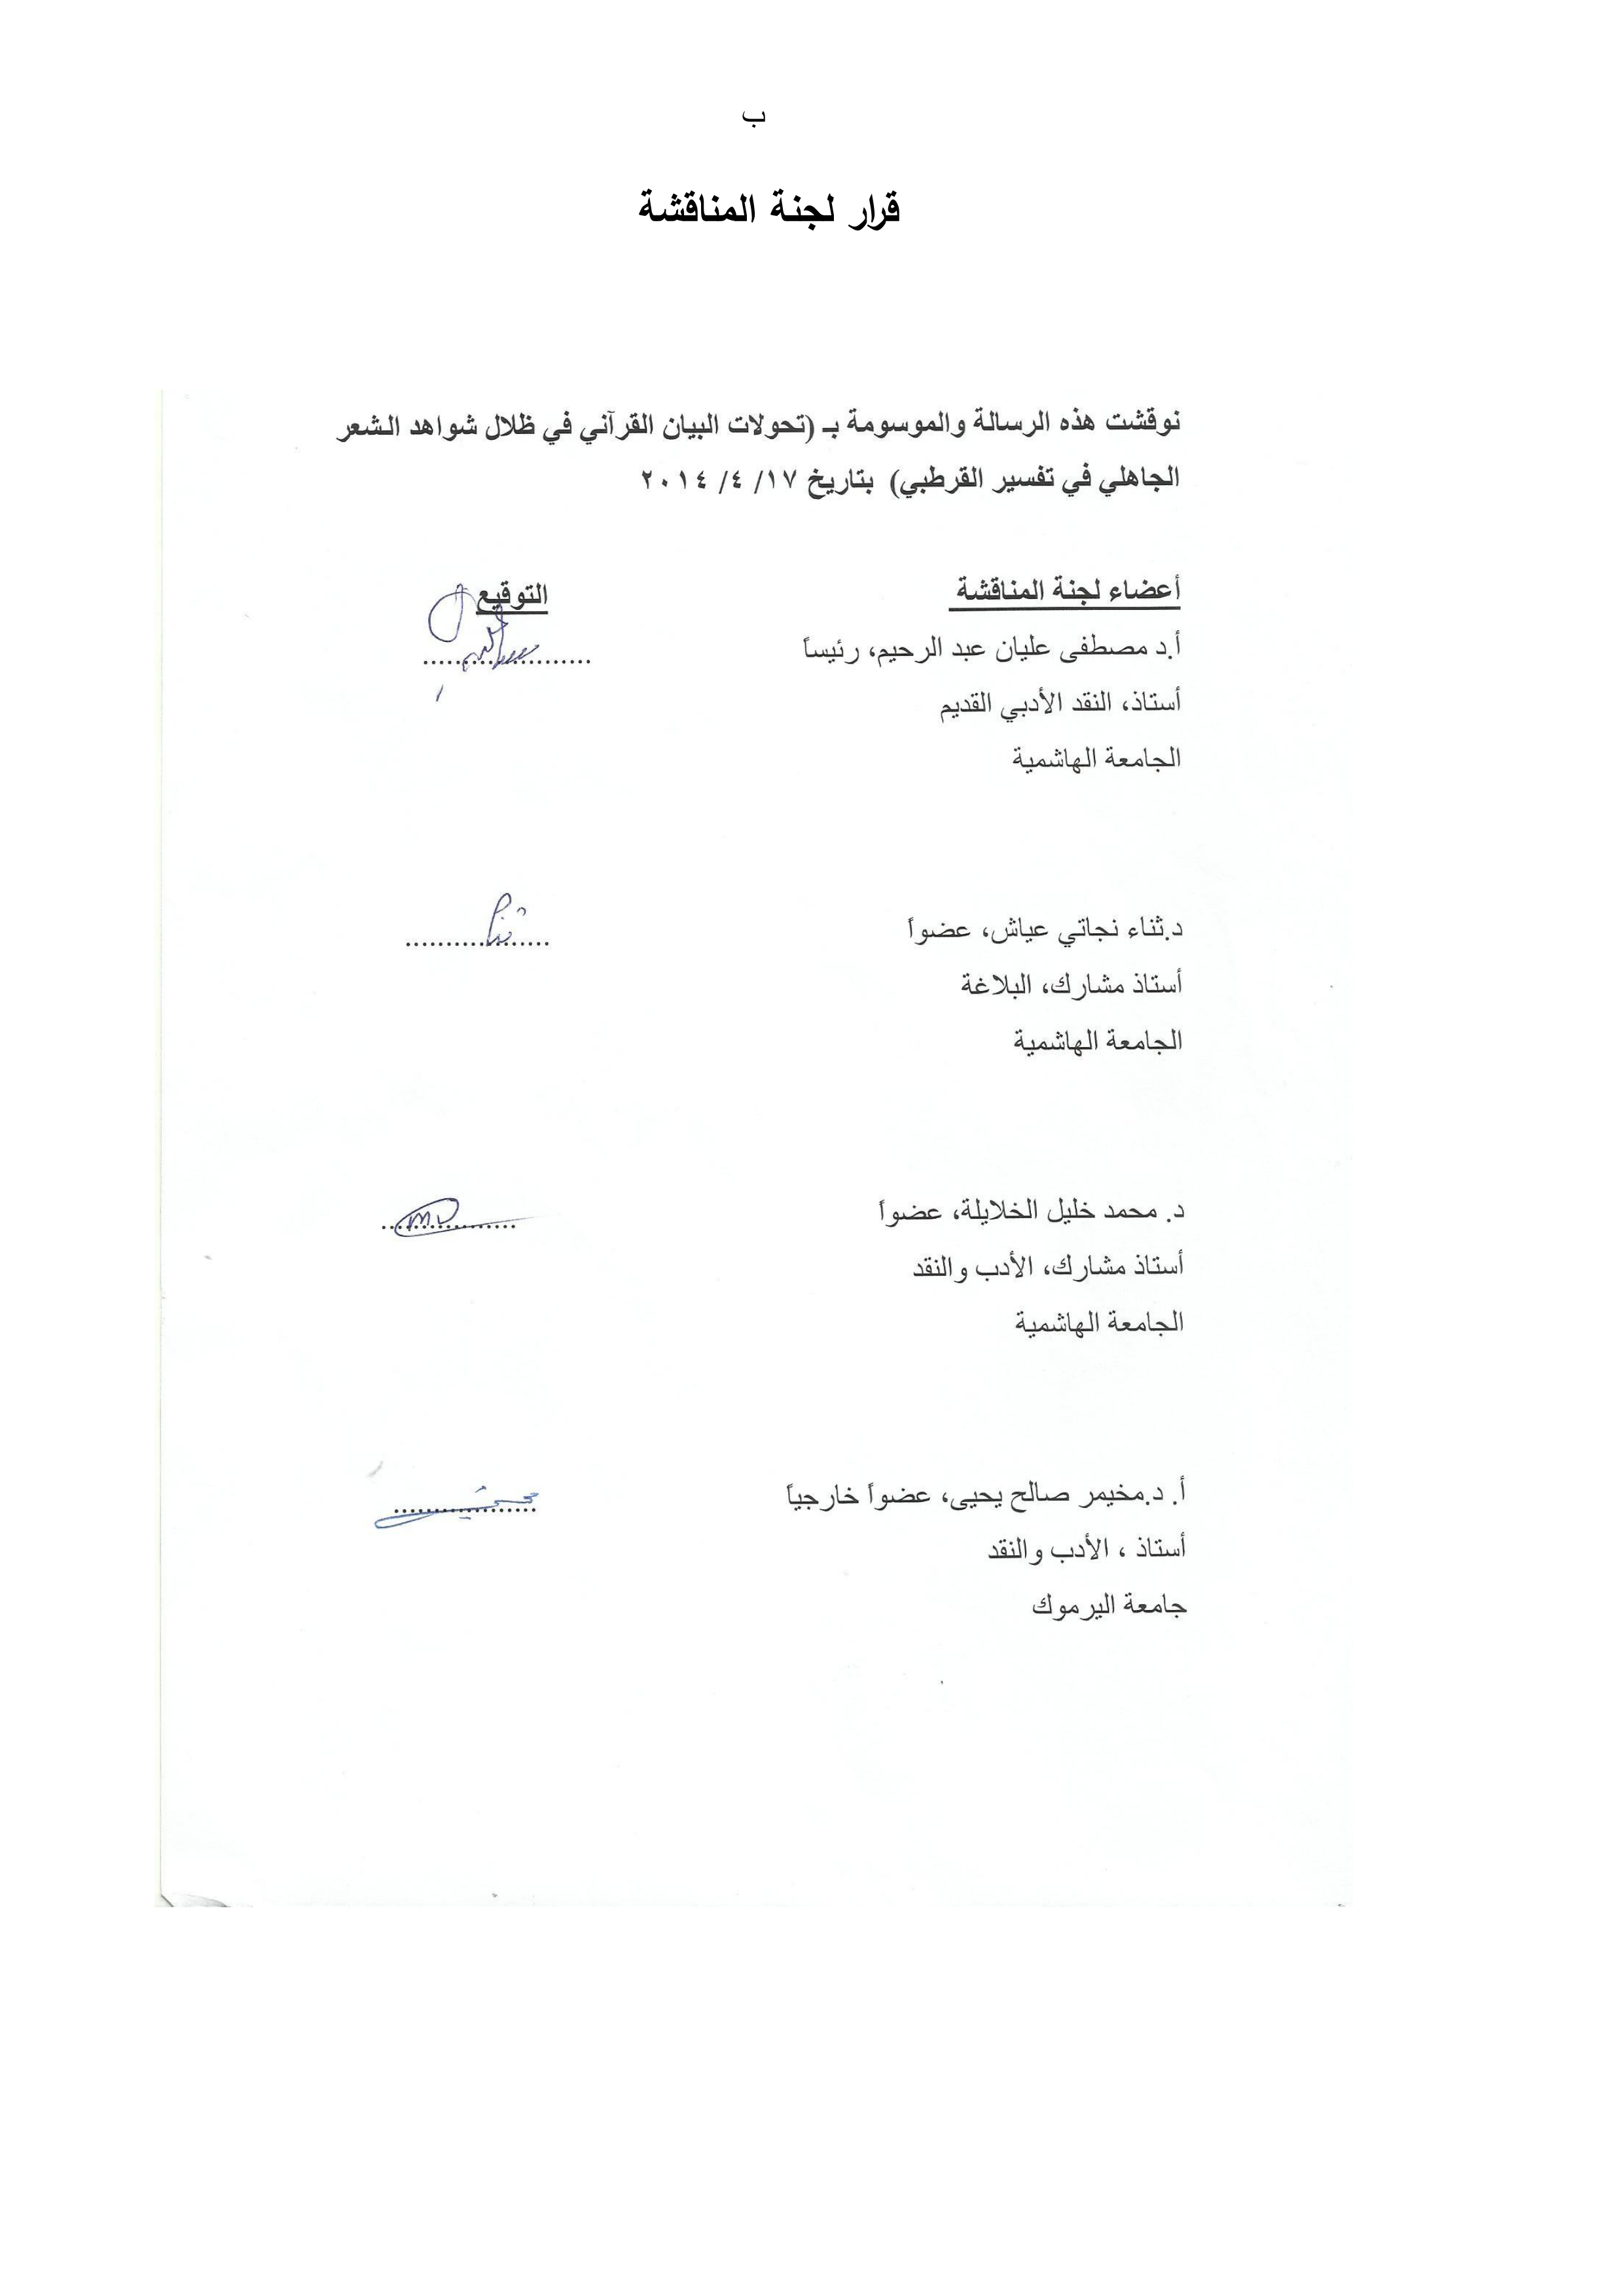 ب
قرار لجنة المناقشة
نوقشت هذه الرسالة والموسومة بـ (تحولات البيان القرآني في ظلال شواهد الشعر
الجاهلي في تفسير القرطبي) بتاريخ ١٧/ ٤/ ٢٠١٤
أعضاء لجنة المناقشة التوقيع
أ.د مصطفى عليان عبد الرحيم، رئيساً .....................
أستاذ، النقد الأدبي القديم
الجامعة الهاشمية
د.ثناء نجاتي عياش، عضواً ..................
أستاذ مشارك، البلاغة
الجامعة الهاشمية
د. محمد خليل الخلايلة، عضواً .................
أستاذ مشارك، الأدب والنقد
الجامعة الهاشمية
أ. د.مخيمر صالح يحيى، عضواً خارجياً ..................
أستاذ ، الأدب والنقد
جامعة اليرموك